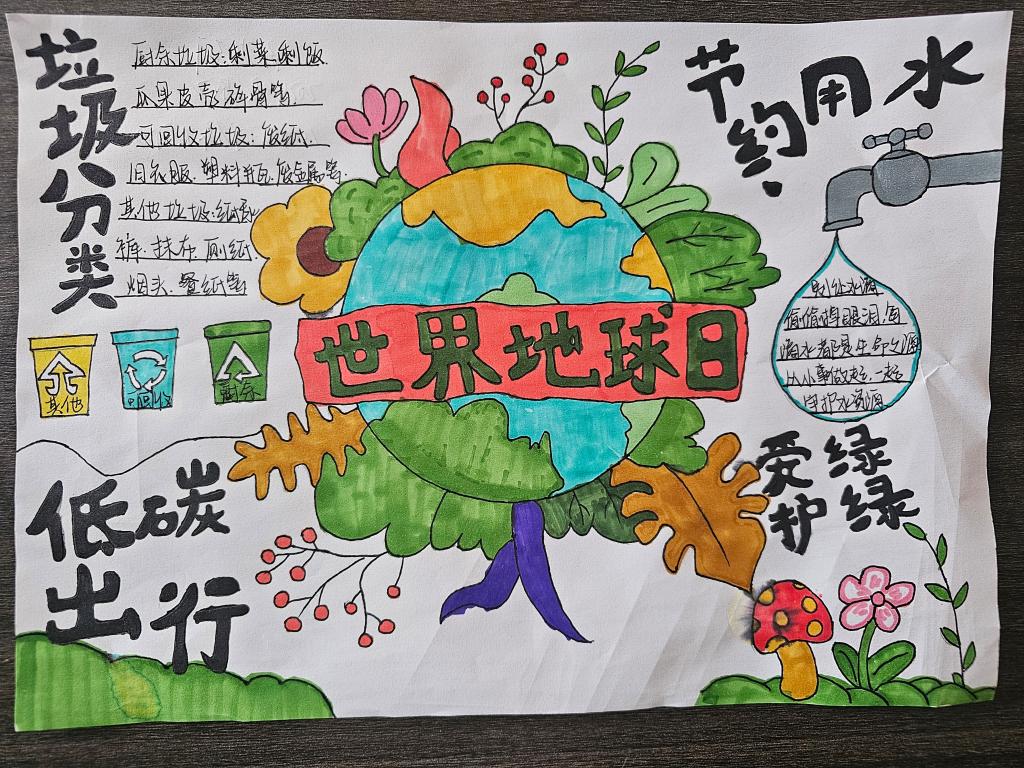 垃圾分类
厨余垃圾:剩菜剩饭
瓜果皮壳碎骨等.
可回收垃圾:废纸.
旧衣服.塑料瓶.废金属等.
其他垃圾:纸尿
裤.抹布.厕纸.
烟头.餐纸等
其他
可回收
厨余
节约用水
别让水源
偷偷掉眼泪,每
滴水都是生命之源
从小事做起.一起
守护水资源
世界地球日
爱绿
护绿
低碳
出行